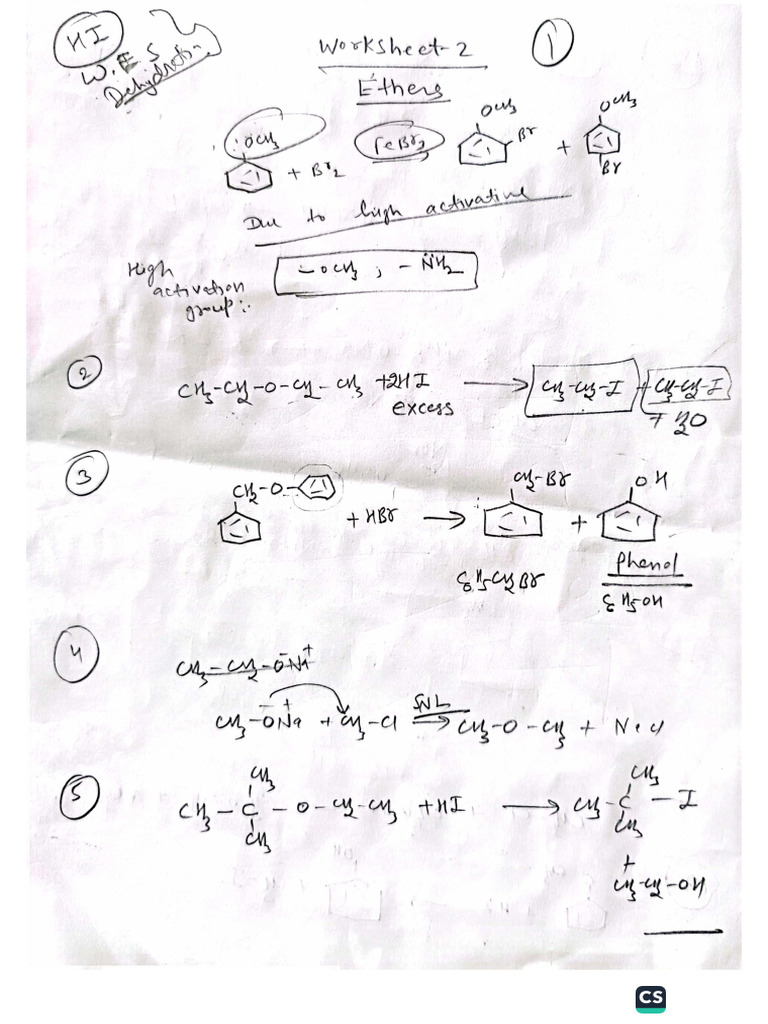 HI
W.E S
Dehydration
Worksheet-2
Ethers
1
:OCH3
+ Br2
FeBr3
OCH3
Br
+
OCH3
Br
Due to high activative
High activation group:-
-OCH3 ; -NH2
2
CH3-CH2-O-CH2-CH3 +2HI excess → CH3-CH2-I + CH3-CH2-I
+ H2O
3
CH2-O-
+ HBr →
CH2-Br
+
OH
C6H5-CH2Br
Phenol
C6H5-OH
4
CH3-CH2-O-Na+
CH3-O-Na+ + CH3-Cl → CH3-O-CH3 + NaCl
5
CH3
CH3-C-O-CH2-CH3 + HI → CH3-C-I
CH3
CH3
CH3
+
CH3-CH2-OH
CS